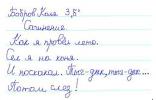 Бобров Коля 3 "Б"
Сочинение.
Как я провёл лето.
Сел я на коня.
И поскакал. Тыг-дык, тыг-дык...
Потом слез!